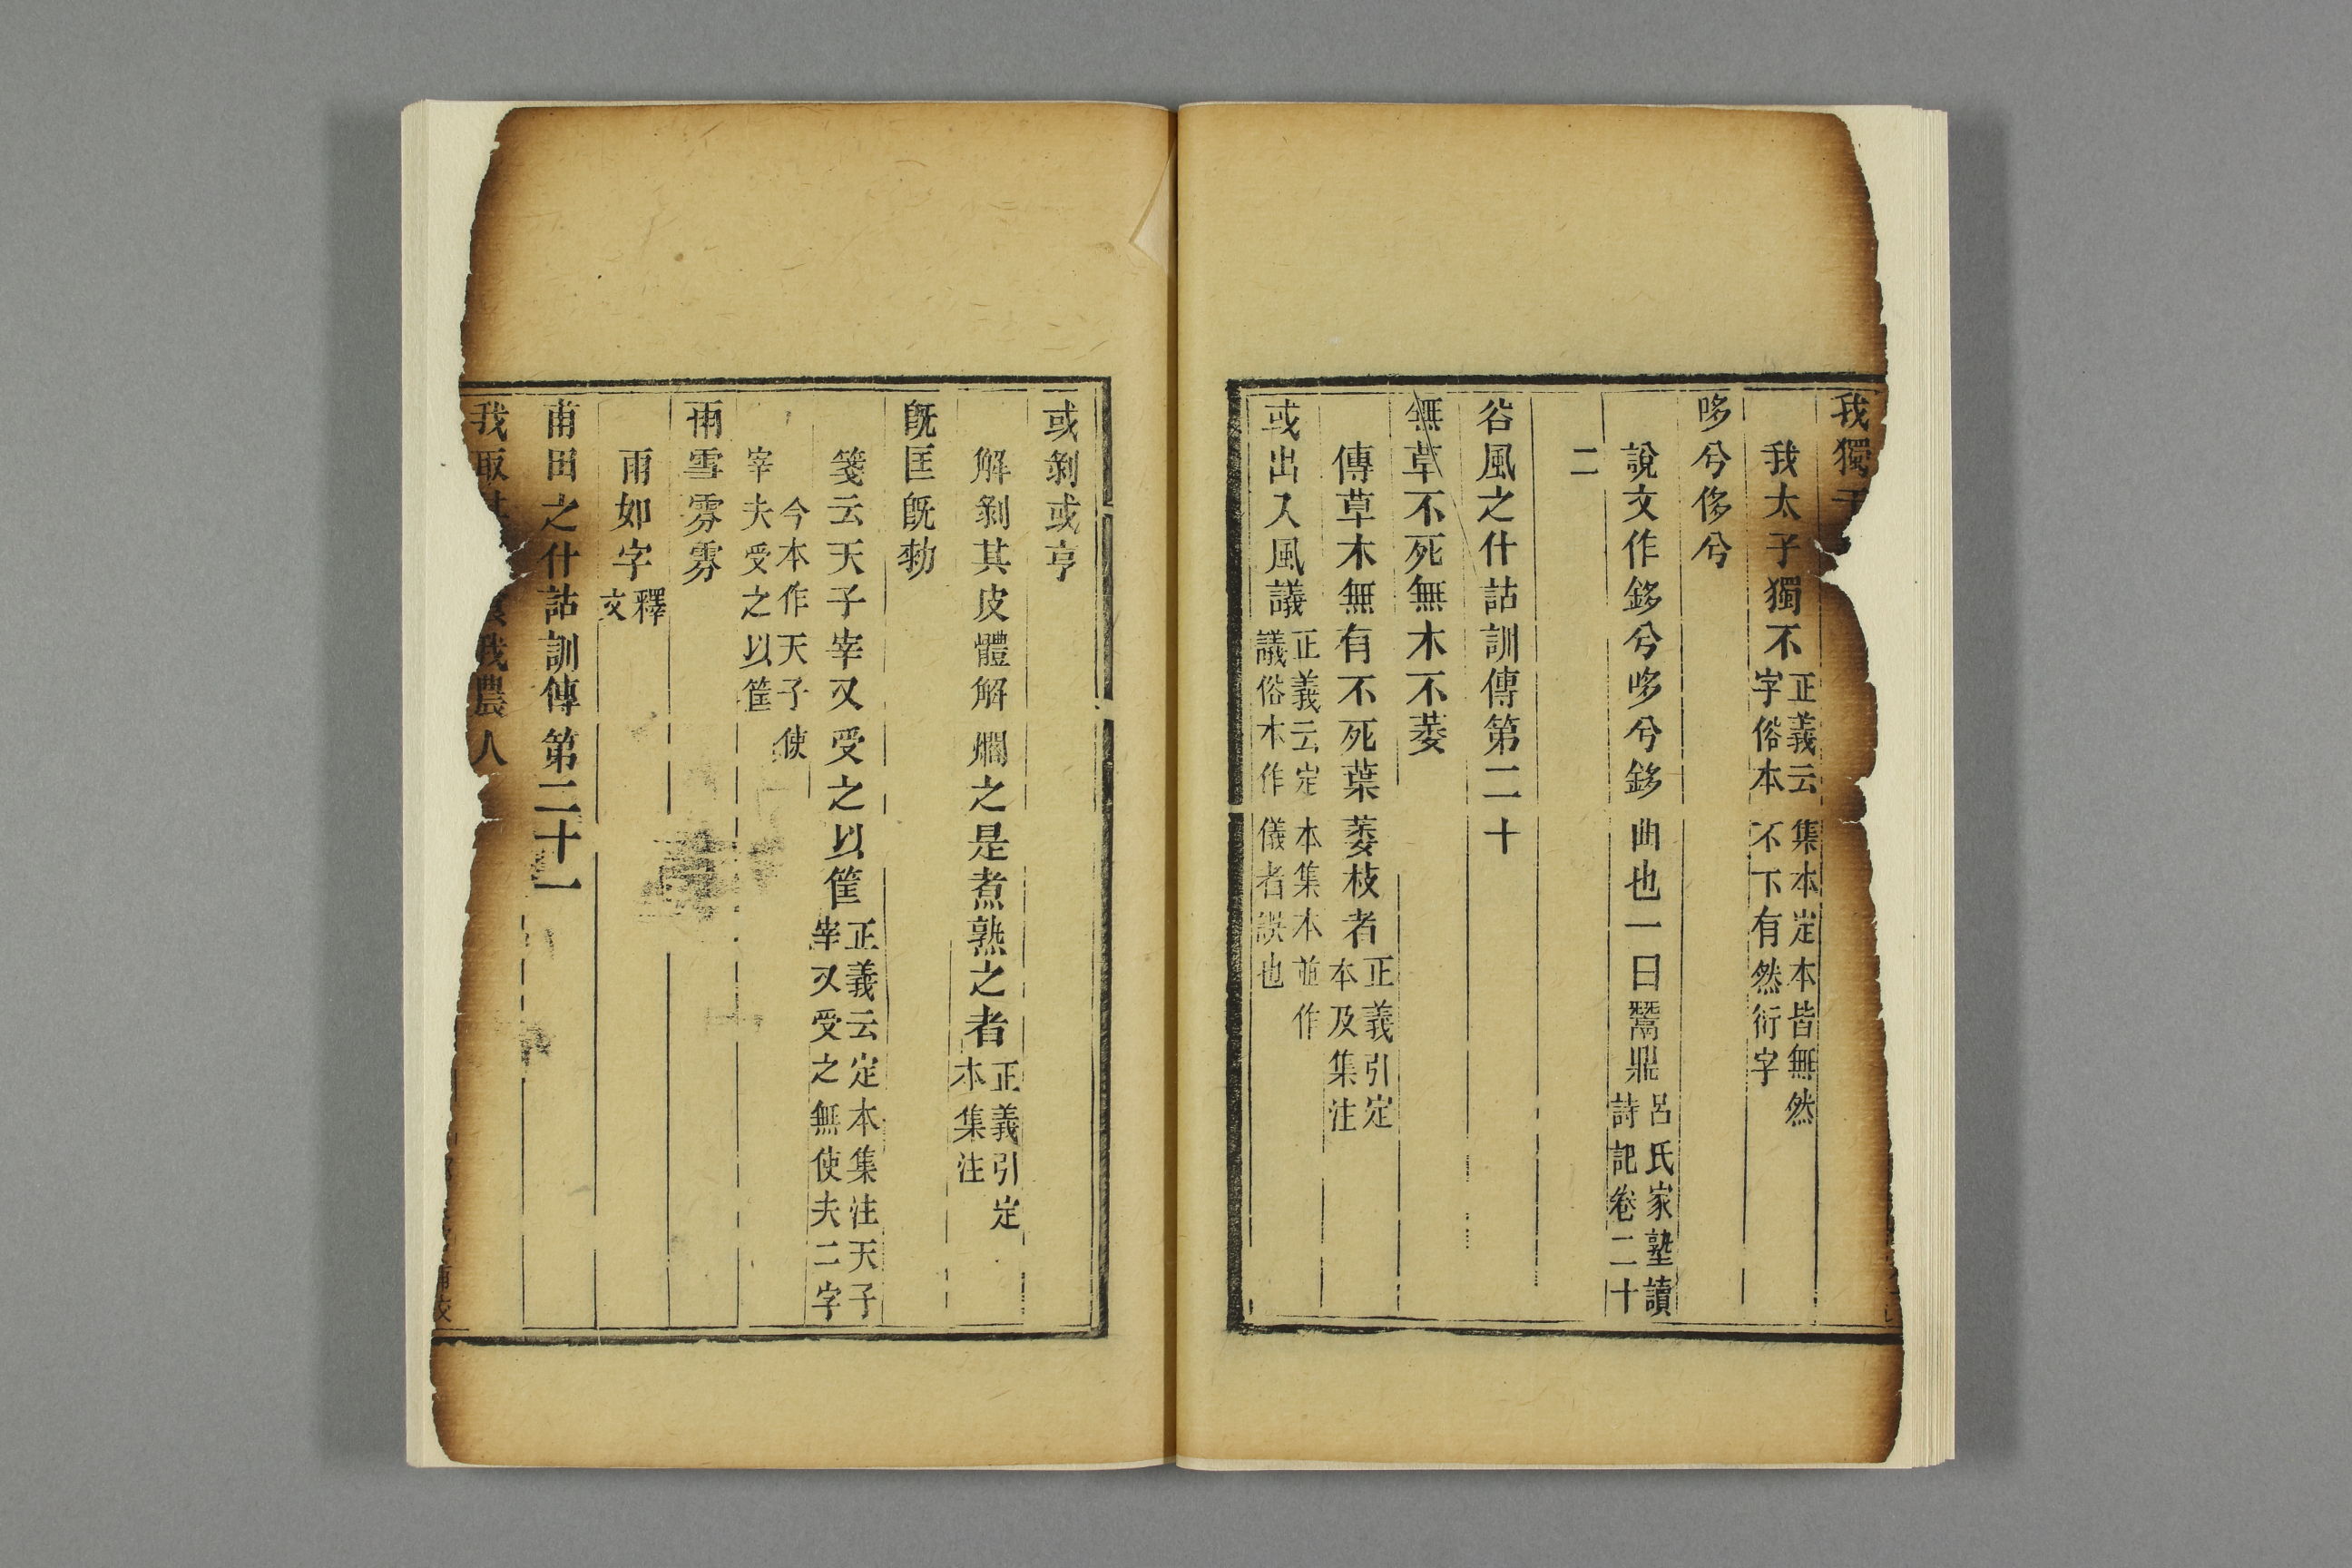 我獨于
我太子獨不正義云集本定本皆無然字俗本不下有然衍字
哆兮侈兮
說文作鉹兮哆兮鉹曲也一曰鬵鼎呂氏家塾讀詩記卷二十
二
谷風之什詁訓傳第二十
無草不死無木不萎
傳草木無有不死葉萎枝者正義引定本及集注
或出入風議正義云定本集本並作議俗本作儀者誤也
或剝或亨
解剝其皮體解爓之是煮熟之者正義引定本集注
旣匡旣勑
箋云天子宰又受之以筐正義云定本集注天子宰又受之無使夫二字
今本作天子使宰夫受之以筐
雨雪雰雰
雨如字釋文
甫田之什詁訓傳第二十一
我取 我農人